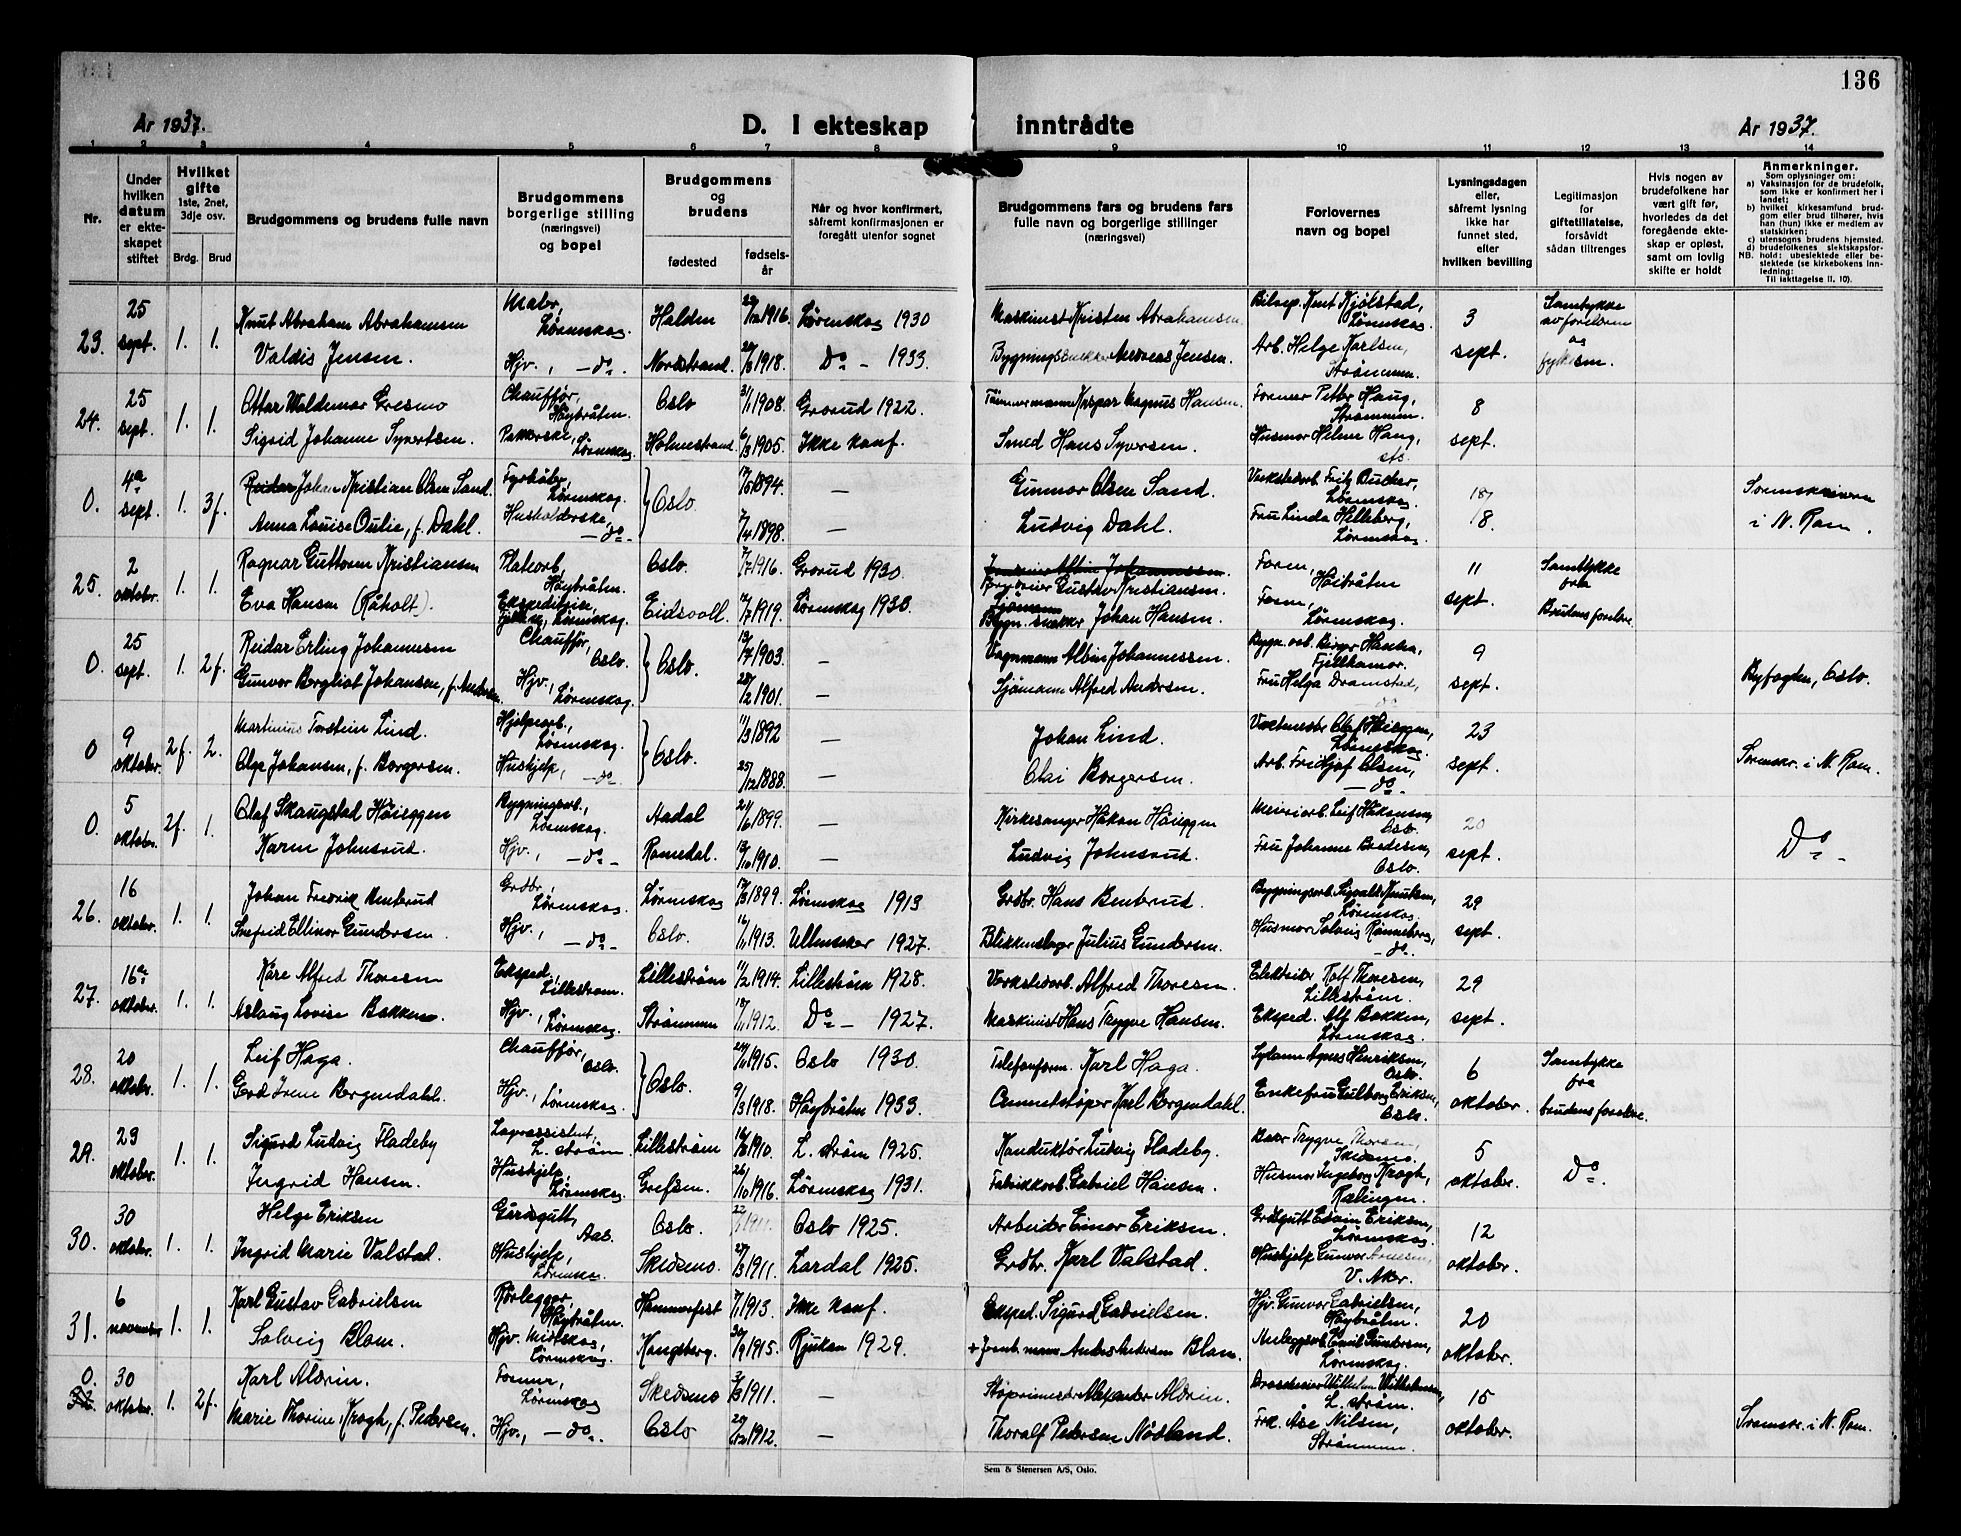 136
År 1937.
D. I ekteskap inntrådte
År 1937.
1 2 3 4 5 6 7 8 9 10 11 12 13 14
Nr.
Under hvilken datum er ekteskapet stiftet
Hvilket gifte 1ste, 2net, 3dje osv.
Brdg. Brud
Brudgommens og brudens fulle navn
Brudgommens borgerlige stilling (næringsvei) og bopel
Brudgommens og brudens
fødested
fødselsår
Når og hvor konfirmert, såfremt konfirmasjonen er foregått utenfor sognet
Brudgommens fars og brudens fars fulle navn og borgerlige stillinger (næringsvei)
Forlovernes navn og bopel
Lysningsdagen eller, såfremt lysning ikke har funnet sted, eller hvilken bevilling
Legitimasjon for giftetillatelse, forsåvidt sådan tiltrenges
Hvis nogen av brudefolkene har vært gift før, hvorledes da det foregående ekteskap er opløst, samt om lovlig skifte er holdt
Anmerkninger.
Som oplysninger om:
a) Vaksinasjon for de brudefolk, som ikke er konfirmert her i landet;
b) hvilket kirkesamfund brudgom eller brud tilhører, hvis han (hun) ikke er medlem av statskirken;
c) utensogns brudens hjemsted.
d) brudefolkenes slektskapsforhold: ubeslektede eller beslektede (se kirkebokens innledning:
NB. Til iakttagelse II. 10).
23. 25 sept. 1. 1. Knut Abraham Abrahamsen Maler, Lørenskog. Halden 1916. Lørenskog 1930 Maskinist Kristen Abrahamsen Knut Kjølstad, Lørenskog 3 Samtykke av foreldrene
Valdis Jensen. Hjv., -do-. Nordstrand. 1918. Do - 1933. Bygningssnekker Andreas Jensen. Arb. Helge Karlsen, Strømmen. sept. og fylkesm.
24. 25 sept. 1. 1. Ottar Waldemar Gresmo Chauffør, Høybråten. Oslo 3/1 1908. Grorud 1922. Kaspar Magnus Hansen. Former Petter Haug, Strømmen. 8
Sigrid Johanne Syvertsen. Pakkerske, Lørenskog. Holmestrand. 1905. Ikke konf. Smed Hans Syversen. Husmor Helene Haug, sts. sept.
0. 4de sept. 1. 3f. Reidar Johan Kristian Olsen Sand. Fyrbøter, Lørenskog. Oslo. 1894. — Gunnar Olsen Sand. Verkstedarb. Fritz Bucher, Lørenskog 18/ Sorenskriveren
Anna Louise Oulie, f. Dahl. Husholderske, -do- 7/4 1898. — Ludvig Dahl. Fru Linda Helleberg, Lørenskog. 18. i N. Rom.
25. 2 oktober. 1. 1. Ragnar Guttorm Kristiansen Platearb., Høybråten. Oslo. 7/7 1916. Grorud 1930. Johannessen. Gustav Kristiansen. Form, Høibråten 11 Samtykke fra
Eva Hansen (Råholt). Ekspeditrise, Lørenskog. Eidsvoll. 1919. Lørenskog 1933. Bygn. snekker Johan Hansen. Form, Lørenskog. sept. Brudens foreldre.
0. 25 sept. 1. 2f. Reidar Erling Johannesen Chauffør, Oslo. Oslo. 1903. — Vognmann Albin Johannessen. Bygn. arb. Birger Hansen, Fjellhamar. 9 Byfogden, Oslo.
Gunvor Bergliot Johansen, f. Andersen Hjv., Lørenskog. 28/2 1901. — Sjømann Alfred Andersen. Fru Helga Dramstad, do sept.
0 9 oktober. 2f. 2. Martinius Torstein Lind. Hjelpearb., Lørenskog. Oslo. 11/3 1892 — Johan Lind. Vaktmester Olaf Høieggen, Lørenskog 23 Sorenskr. i N. Rom.
Olga Johansen, f. Borgersen. Hushjelp, -do-. 25/12 1888. — Olai Borgersen. Arb. Fridtjof Olsen, -do-. sept.
0. 5 oktober. 2f. 1. Olaf Skaugstad Høieggen Bygningsarb., Lørenskog. Aadal 1899. — Kirkesanger Håkon Høieggen Meieriarb. Leif Håkonsen, Oslo. 20 Do -
Karen Johnsrud. Hjv., -do- Romedal. 1910. — Ludvig Johnsrud. Fru Johanne Oslo. sept.
26. 16 oktober. 1. 1. Johan Fredrik Benterud Grdbr., Lørenskog. Lørenskog 1899. Lørenskog 1913 Grdbr. Hans Benterud. Bygningsarb. Sigvald Knutsen, Lørenskog. 29
Snefrid Ellinor Gundersen Hjv., -do- Oslo. 1913. Ullensaker 1927. Blikkenslager Julius Gundersen. Husmor Solveig Rønneberg, -do-. sept.
27. 16de oktober. 1. 1. Kåre Alfred Thoresen Eksped., Lillestrøm. Lillestrøm 11/2 1914. Lillestrøm 1928. Verkstedarb. Alfred Thoresen. Elektriker Rolf Thoresen, Lillestrøm. 29
Aslaug Lovise Bakken. Hjv., Lørenskog. Strømmen 1912. Do - 1927. Maskinist Hans Trygve Hansen. Eksped. Alf Bakken, Lørenskog. sept.
28. 20 oktober. 1. 1. Leif Haga. Chauffør, Oslo. Oslo. 1915. Oslo 1930. Telefonform. Karl Haga. Agnes Henriksen, Oslo. 6 Samtykke fra
Gerd Irene Bergendahl. Hjv., Lørenskog. 9/3 1918. Høybråten 1933. Cementstøper Karl Bergendahl. Enkefru Gulborg Eriksen, Oslo. oktober. brudens foreldre.
29. 29 oktober. 1. 1. Sigurd Ludvig Fladeby Lagerassistent, L. strøm Lillestrøm 1910. L. strøm 1925. Konduktør Ludvig Fladeby. Trygve Thoresen, Skedsmo. 5 Do.
Ingrid Hansen. Hushjelp, Lørenskog. Grefsen. 26/10 1916. Lørenskog 1931. Fabrikkarb. Gabriel Hansen. Husmor Ingeborg Krogh, Rælingen. oktober.
30. 30 oktober. 1. 1. Helge Eriksen Gårdsgutt, Aas. Oslo. 1911. Oslo 1925. Arbeider Einar Eriksen. Grdsgutt Edvin Eriksen, Lørenskog. 12
Ingrid Marie Valstad. Hushjelp, Lørenskog. Skedsmo. 1911. Lardal 1925. Grdbr. Karl Valstad. Hushjelp Gunvor Arnesen, V. Aker. oktober.
31. 6 november 1. 1. Karl Gustav Gabrielsen Rørlegger, Høybråten. Hammerfest 7/1 1913. Ikke konf. Eksped. Sigurd Gabrielsen. Hjv. Gunvor Gabrielsen, Høybråten. 20
Solveig Blom. Hjv. Lørenskog. Kongsberg. 30/9 1915. Rjukan 1929. + Anders Andersen Blom. Anleggsarb. Emil Gundersen, Lørenskog. oktober.
0. 32. 30 oktober. 1. 2f. Karl Aldrin. Former, Lørenskog Skedsmo 1911. — Støperimester Alexander Aldrin. Wilhelm Wilhelmsen, L. strøm. 15 Sorenskr. i N. Rom.
Marie Thorine Krogh, f. Pedersen. Hjv., -do-. Oslo 1912. — Thoralf Pedersen Nødland. Frk. Åse Nilsen, Strømmen. oktober.
Sem & Stenersen A/S, Oslo.